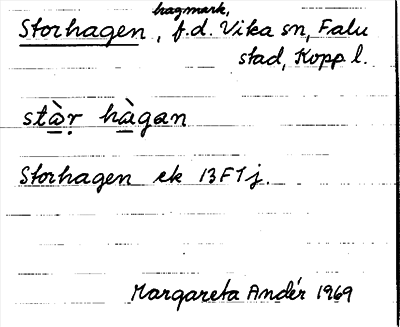 hagmark,
Storhagen, f.d. Vika sn, Falu
stad, Kopp l.
stàr hàgan
Storhagen ek 13F1j.
Margareta Andér 1969